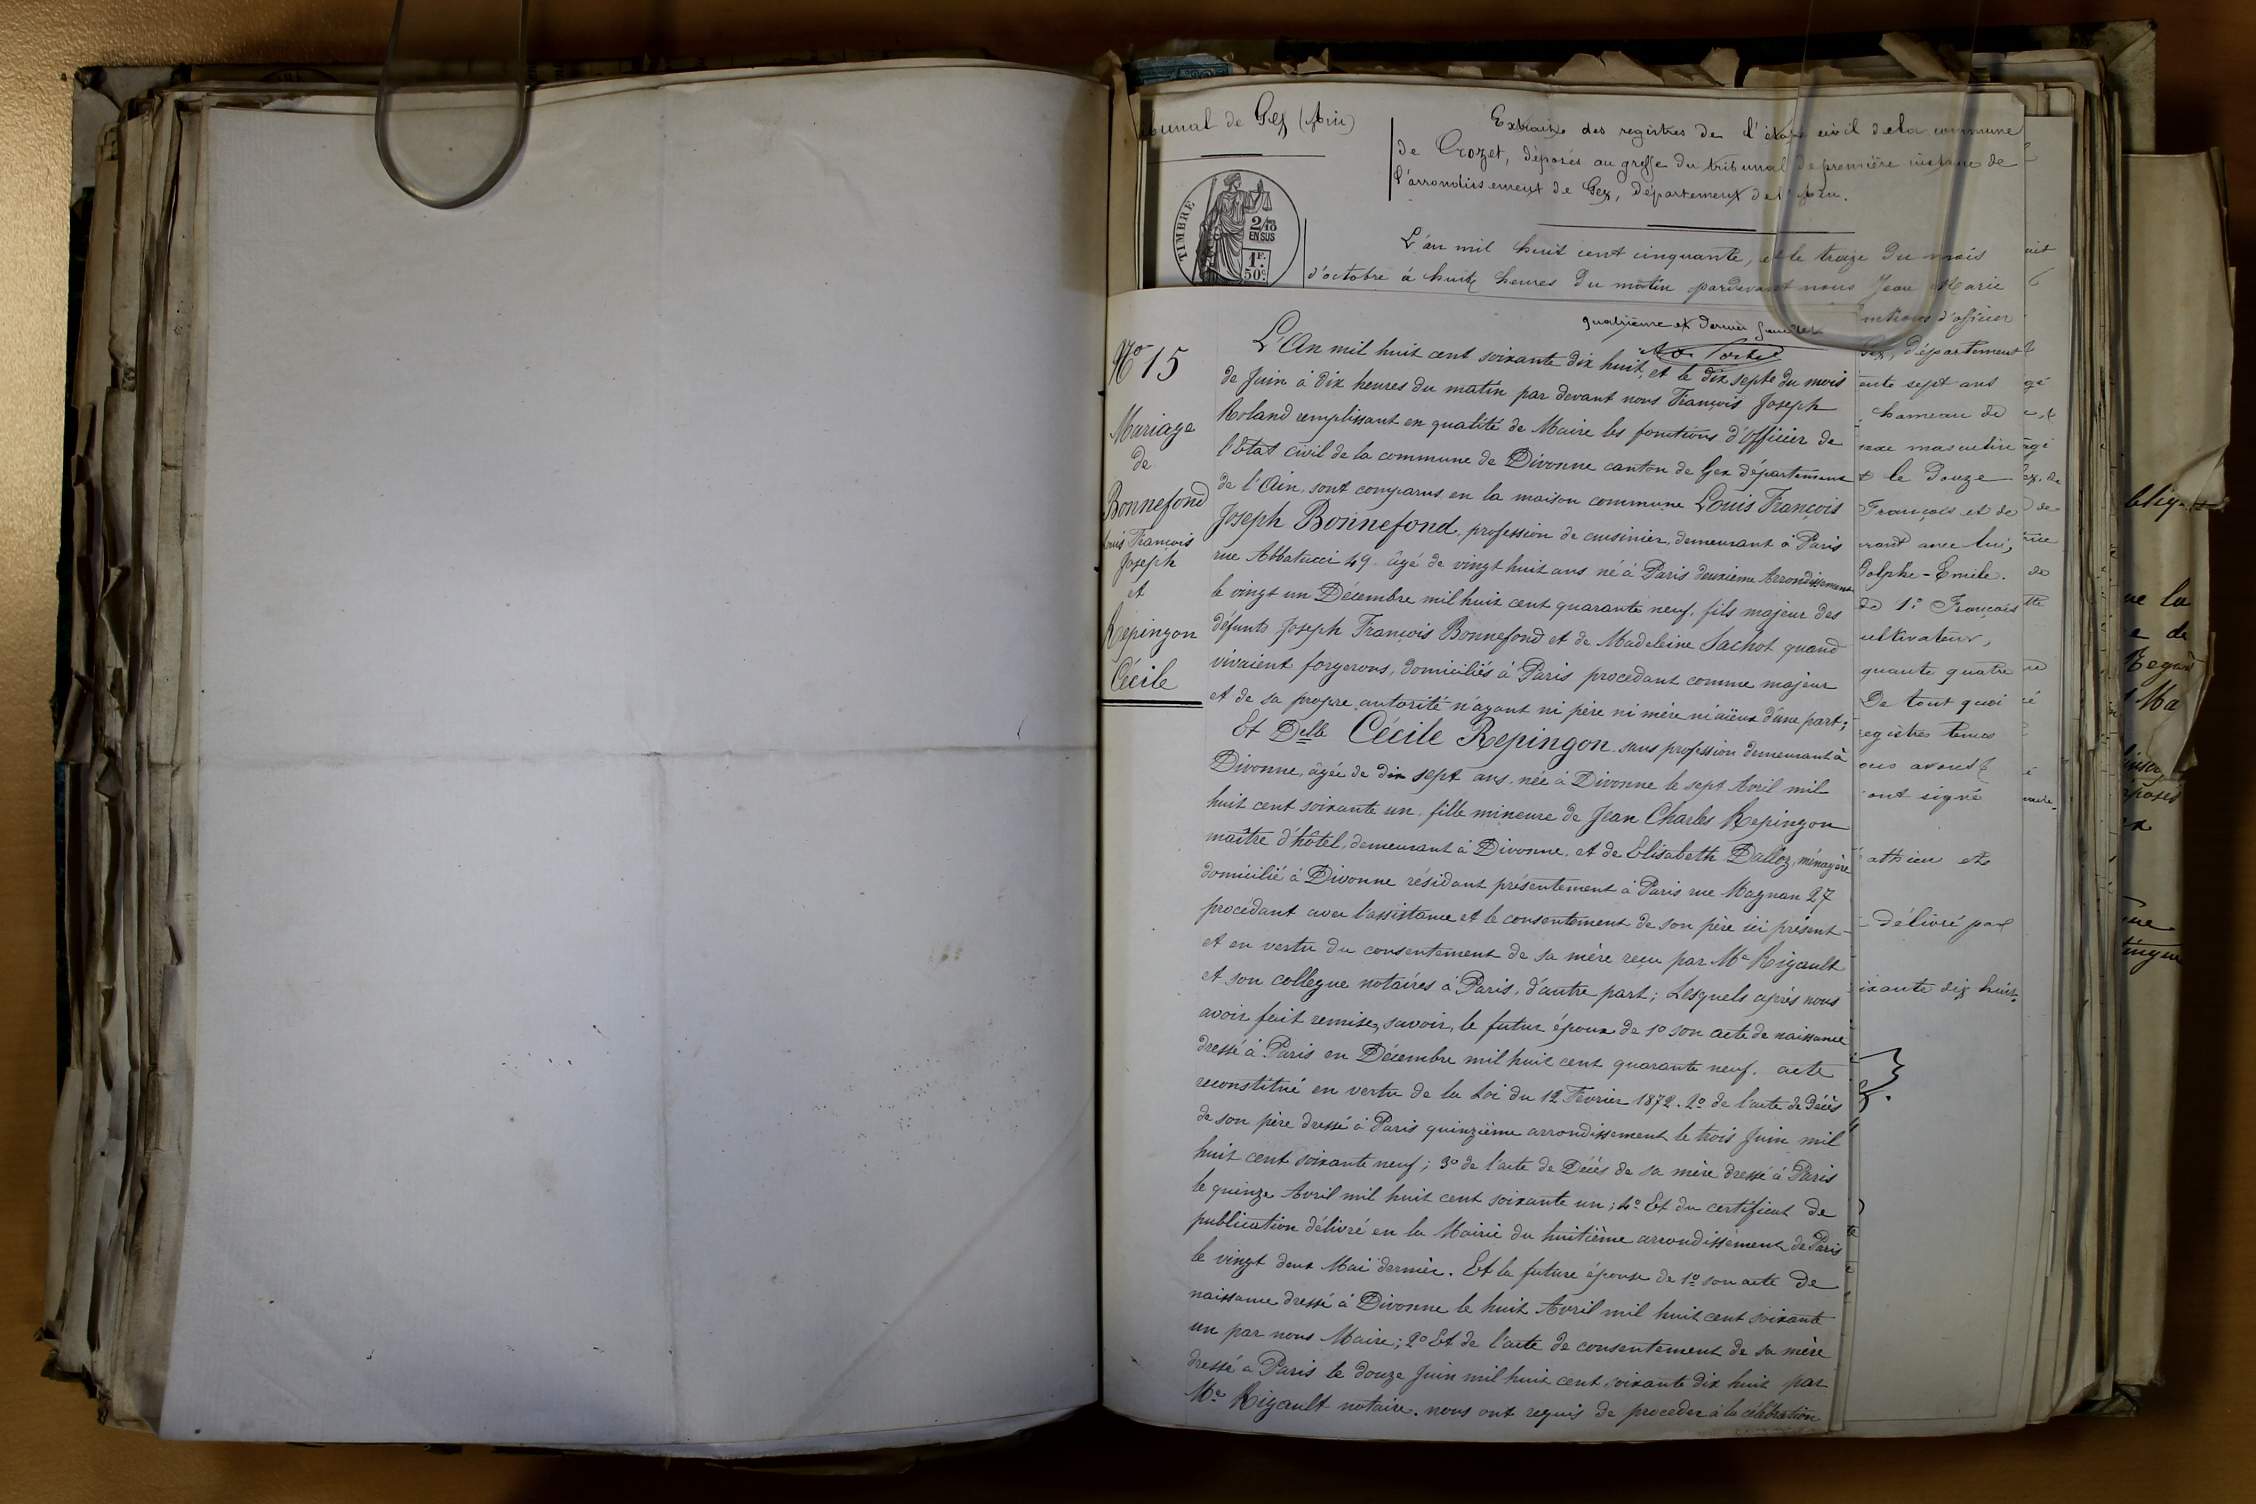 bunal de Gex (Ain)
Extrait des registres de l'état civil de la commune
de Crozet, déposés au greffe du tribunal de première instance de
l'arrondissement de Gex, département de l'Ain.
TIMBRE
2/10
EN SUS
1F.
50c.
L'an mil huit cent cinquante, et le treize du mois
d'octobre à huit heures du matin pardevant nous Jean Marie
nctions d'officier
Gex, département
ente sept ans
hameau de
sexe masculin
et le Douze
François et de
rant avec lui,
dolphe-Emile.
de 1° Français
ultivateur,
quante quatre
De tout quoi
registres tenus
ous avons
ont signé
athieu etc
délivré par
ixante dix huit.
quatrième et dernier
No 15
Mariage
de
Bonnefond
Louis François
Joseph
et
Repingon
Cécile
L'An mil huit cent soixante dix huit, et le dix sept du mois
de Juin à dix heures du matin par devant nous François Joseph
Roland remplissant en qualité de Maire les fonctions d'Officier de
l'Etat civil de la commune de Divonne canton de Gex département
de l'Ain, sont comparus en la maison commune Louis François
Joseph Bonnefond, profession de cuisinier, demeurant à Paris
rue Abbatucci 49. âgé de vingt huit ans né à Paris deuxième Arrondissement
le vingt un Décembre mil huit cent quarante neuf, fils majeur des
défunts Joseph François Bonnefond et de Madeleine Sachot quand
vivaient forgerons, domiciliés à Paris procédant comme majeur
et de sa propre autorité n'ayant ni père ni mère ni aïeux d'une part;
Et Delle Cécile Repingon. sans profession demeurant à
Divonne, âgée de dix sept ans, née à Divonne le sept Avril mil
huit cent soixante un, fille mineure de Jean Charles Repingon
maître d'hôtel, demeurant à Divonne, et de Elisabeth Dalloz, ménagère
domicilié à Divonne résidant présentement à Paris rue Magnan 27
procédant avec l'assistance et le consentement de son père ici présent
et en vertu du consentement de sa mère reçu par Me Rigault
et son collegue notaires à Paris, d'autre part; Lesquels après nous
avoir fait remise, savoir, le futur époux de 1o son acte de naissance
dressé à Paris en Décembre mil huit cent quarante neuf. acte
reconstitué en vertu de la Loi du 12 Fevrier 1872. 2o de l'acte de décès
de son père dressé à Paris quinzième arrondissement le trois Juin mil
huit cent soixante neuf; 3o de l'acte de Décès de sa mère dressé à Paris
le quinze Avril mil huit cent soixante un; 4o Et du certificat de
publication délivré en la Mairie du huitième arrondissement de Paris
le vingt deux Mai dernier. Et la future épouse de 1o son acte de
naissance dressé à Divonne le huit Avril mil huit cent soixante
un par nous Maire; 2o Et de l'acte de consentement de sa mère
dressé a Paris le douze Juin mil huit cent soixante dix huit par
Me Rigault notaire. nous ont requis de proceder à la célébration